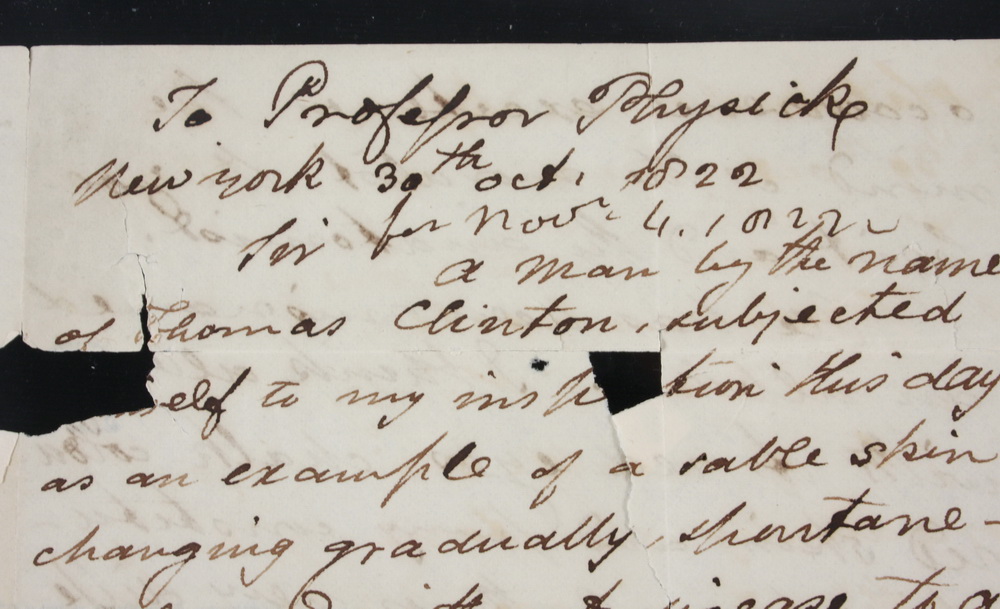 To Professor Physick
New york 30th oct. 1822
Sir for Novr. 4. 1822
a man by the name
of Thomas Clinton, subjected
self to my insp tion this day
as an example of a sable skin
changing gradually, spontane-
disease to a